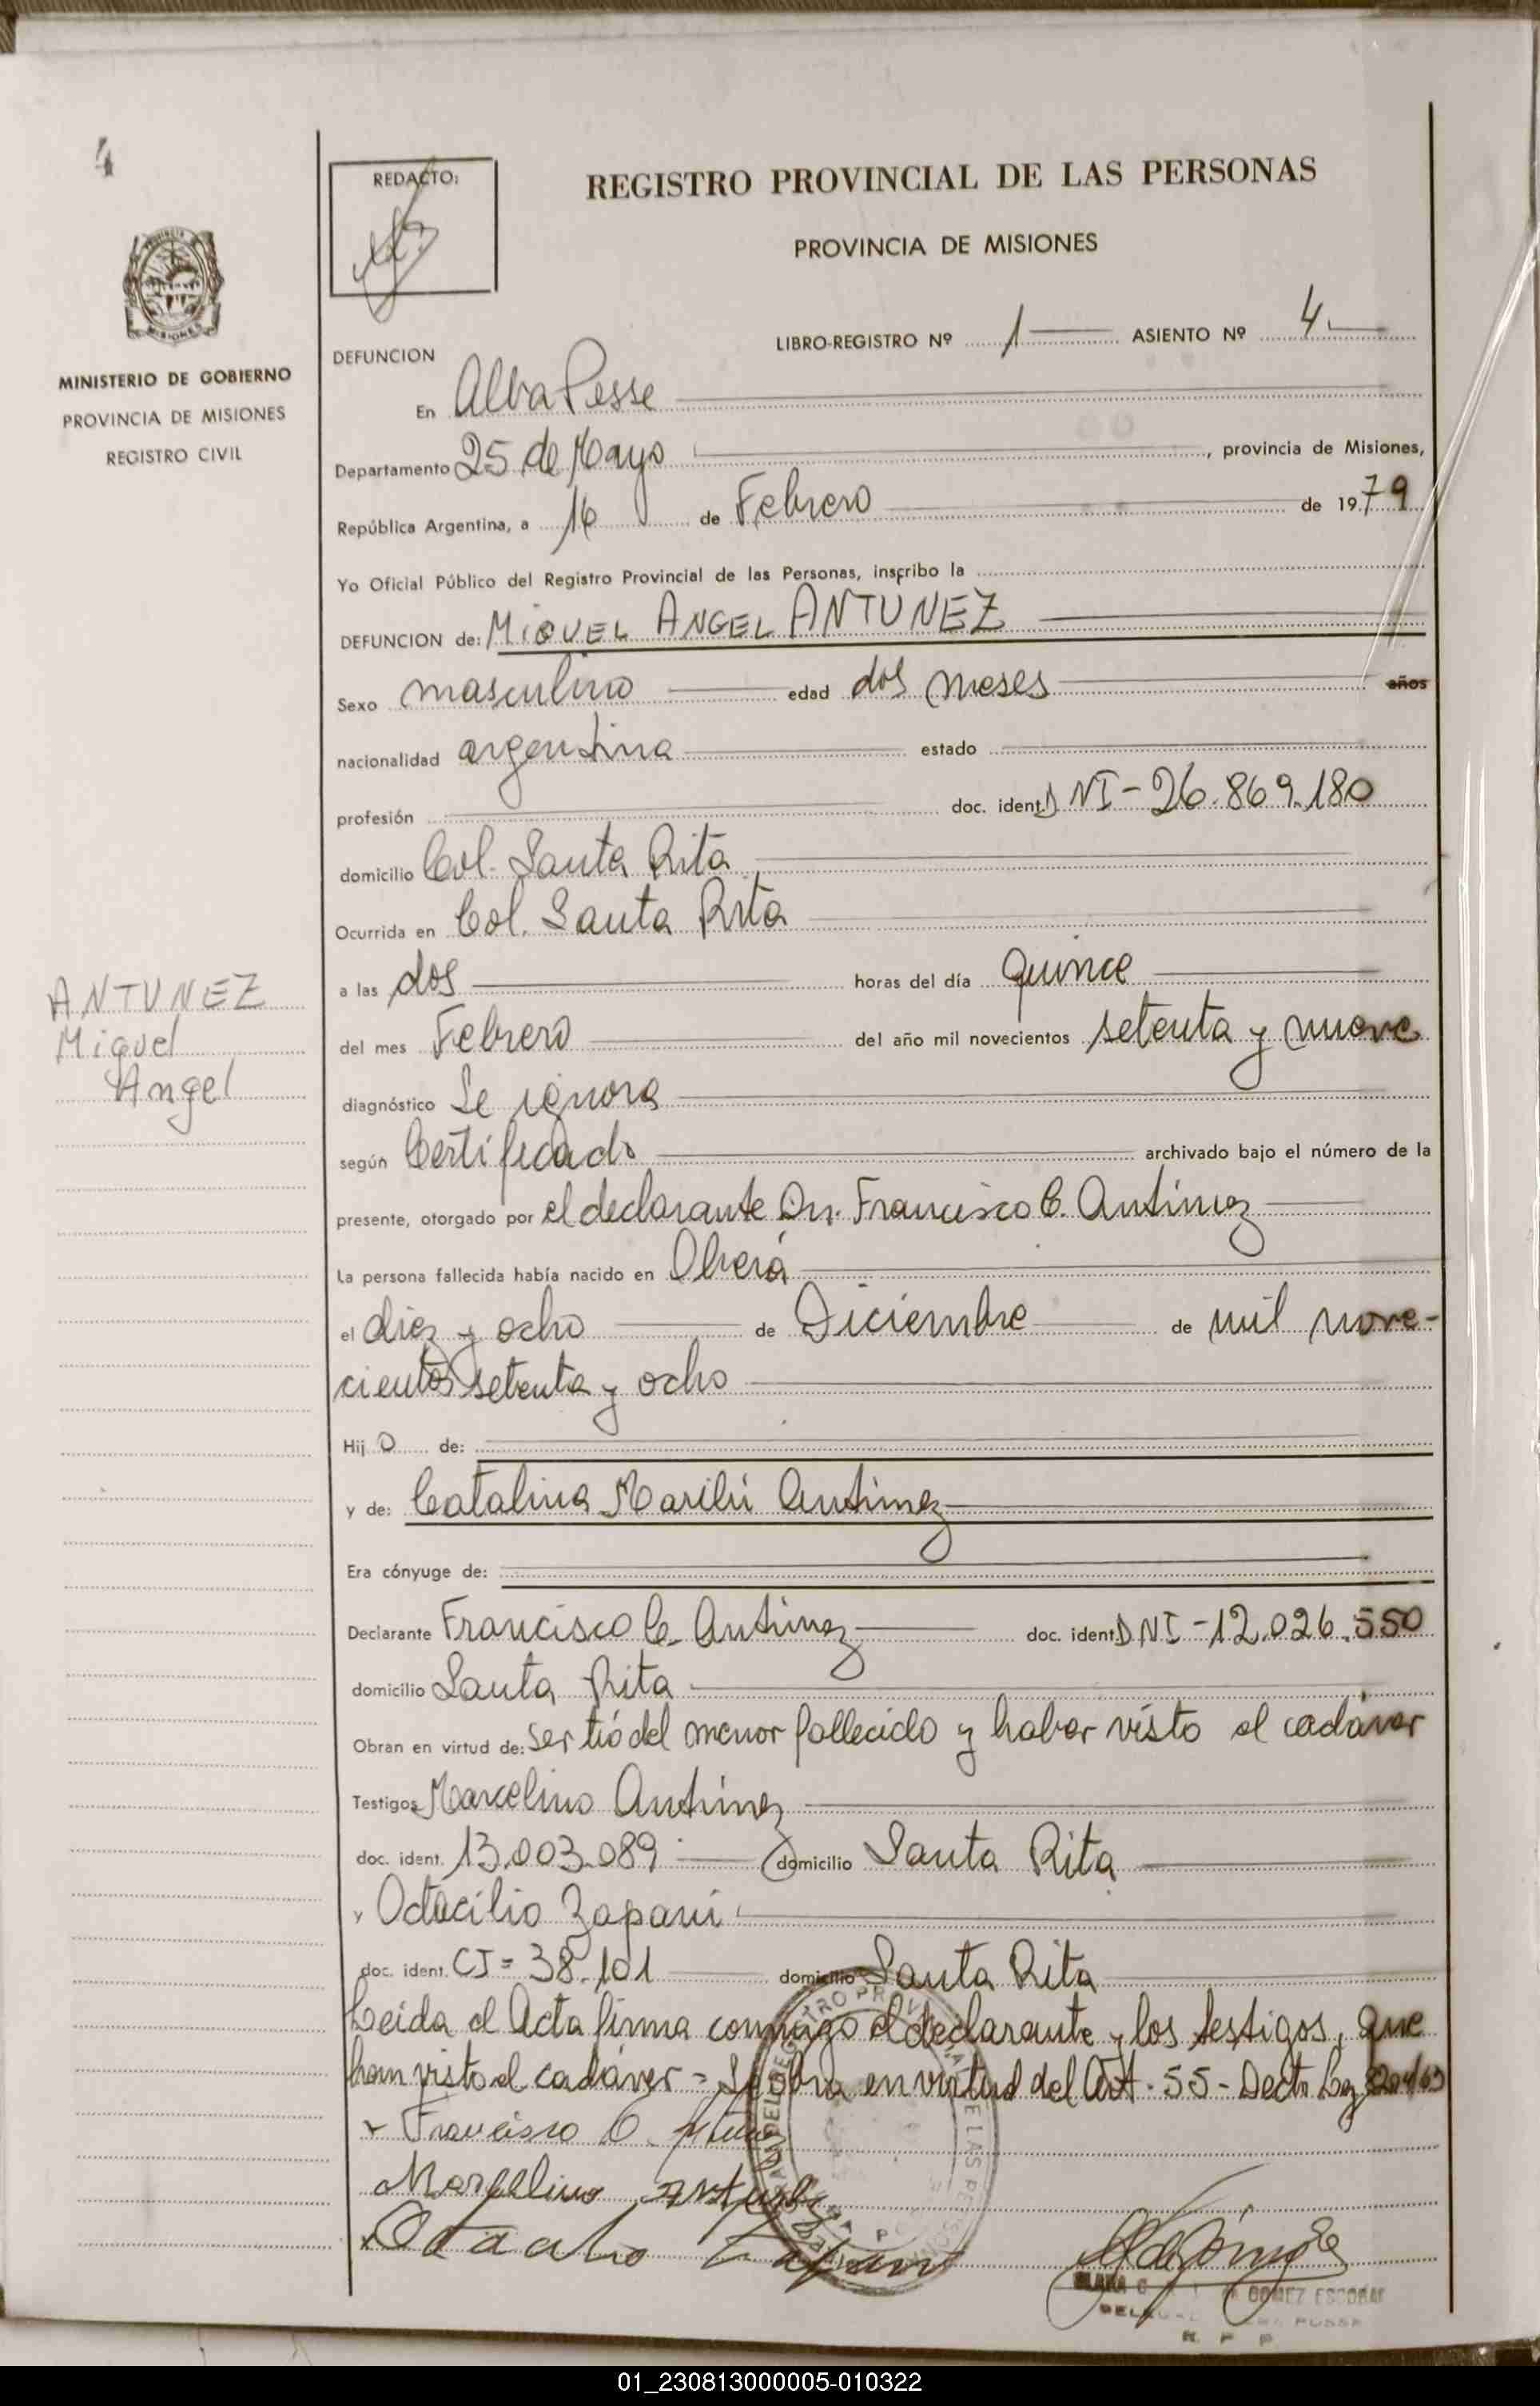 4
REDACTO:
REGISTRO PROVINCIAL DE LAS PERSONAS
PROVINCIA DE MISIONES
MISIONES
MINISTERIO DE GOBIERNO
PROVINCIA DE MISIONES
REGISTRO CIVIL
LIBRO-REGISTRO Nº 1 ASIENTO Nº 4
DEFUNCION
En Alba Posse
Departamento 25 de Mayo, provincia de Misiones,
República Argentina, a 16 de Febrero de 1979
Yo Oficial Público del Registro Provincial de las Personas, inscribo la
DEFUNCION de: MIGUEL ANGEL ANTUNEZ
Sexo masculino edad dos meses años
nacionalidad argentina estado
profesión doc. ident. DNI-26.869.180
domicilio Col. Santa Rita
Ocurrida en Col. Santa Rita
a las dos horas del día quince
ANTUNEZ
Miguel
Angel
del mes Febrero del año mil novecientos setenta y nueve
diagnóstico Se ignora
según Certificado archivado bajo el número de la
presente, otorgado por el declarante Dn. Francisco C. Antúnez
La persona fallecida había nacido en Oberá
el diez y ocho de Diciembre de mil nove-
cientos setenta y ocho
Hijo de:
y de: Catalina Marilú Antúnez
Era cónyuge de:
Declarante Francisco C. Antúnez doc. ident. DNI-12.026.550
domicilio Santa Rita
Obran en virtud de: ser tío del menor fallecido y haber visto el cadáver
Testigos Marcelino Antúnez
doc. ident. 13.003.089 domicilio Santa Rita
y Octacilio Zapani
doc. ident. CI= 38.101 domicilio Santa Rita
Leída el Acta firma conmigo el declarante y los testigos, que
han visto el cadáver = Se obra en virtud del Art. 55 - Decto Ley 8204/63
Francisco C.
Marcelino
GOMEZ ESCOBAR
POSSE
R. P. P
01_230813000005-010322